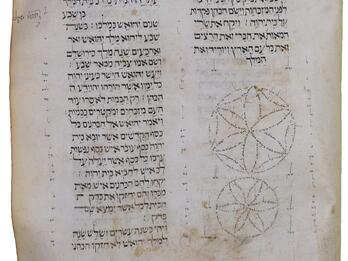 לפני המזבחות וישם הכהן פקדות
על בית יהוה : ויקח את
המאות ואת הכרי ואת הרצים
ואת כל עם הארץ
המלך
שבע
שנים יהואש במלכו : בשנת
שבע ליהוא מלך יהואש
וארבעים שנה מלך בירושלם
ושם אמו צביה מבאר שבע :
ויעש יהואש הישר בעיני יהוה
כל ימיו אשר הורהו יהוידע
הכהן : רק הבמות לא סרו עוד
העם מזבחים ומקטרים בבמות
ויאמר יהואש אל הכהנים כל
כסף הקדשים אשר יובא בית
יהוה כסף עובר איש כסף נפשות
ערכו כל כסף אשר יעלה על
לב איש להביא בית יהוה :
יקחו להם הכהנים איש מאת
מכרו והם יחזקו את בדק
הבית לכל אשר ימצא שם
בדק :
ויהי בשנת עשרים ושלש שנה
למלך יהואש לא חזקו הכהני